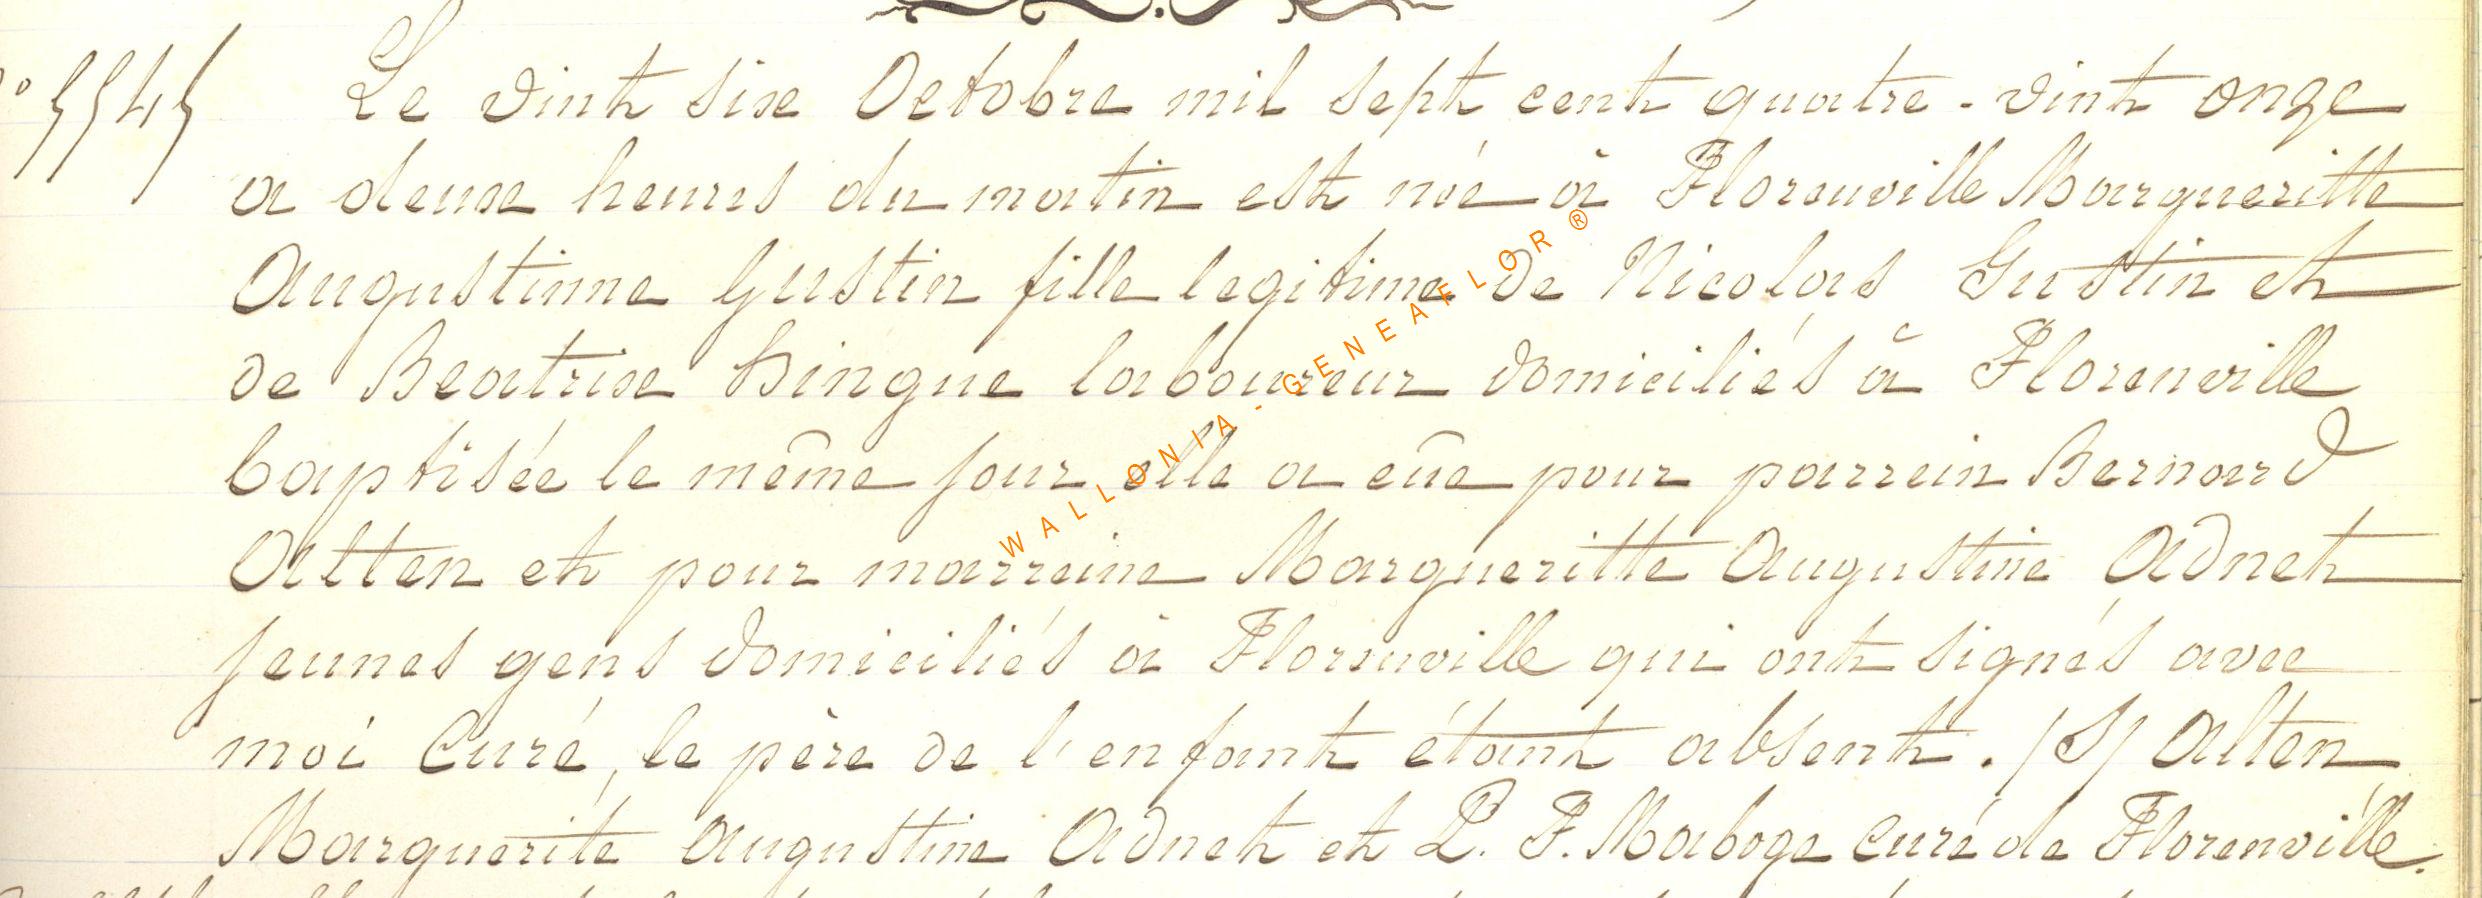 N° 5545
Le vint six Octobre mil sept cent quatre-vint onze
a deux heures du matin est née à Florenville Margueritte
Augustinne Gustin fille legitime de Nicolas Gustin et
de Beatrise Hingue laboureur domiciliés à Florenville
baptisée le même jour elle a eûe pour parrein Bernard
Alten et pour marreine Margueritte Augustine Adnet
jeunes gens domiciliés à Florenville qui ont signés avec
moi Curé, le père de l'enfant étant absent. /S/ Alten
Marguerite Augustine Adnet et P. F. Maboge Curé de Florenville.
WALLONIA-GENEAFLOR®